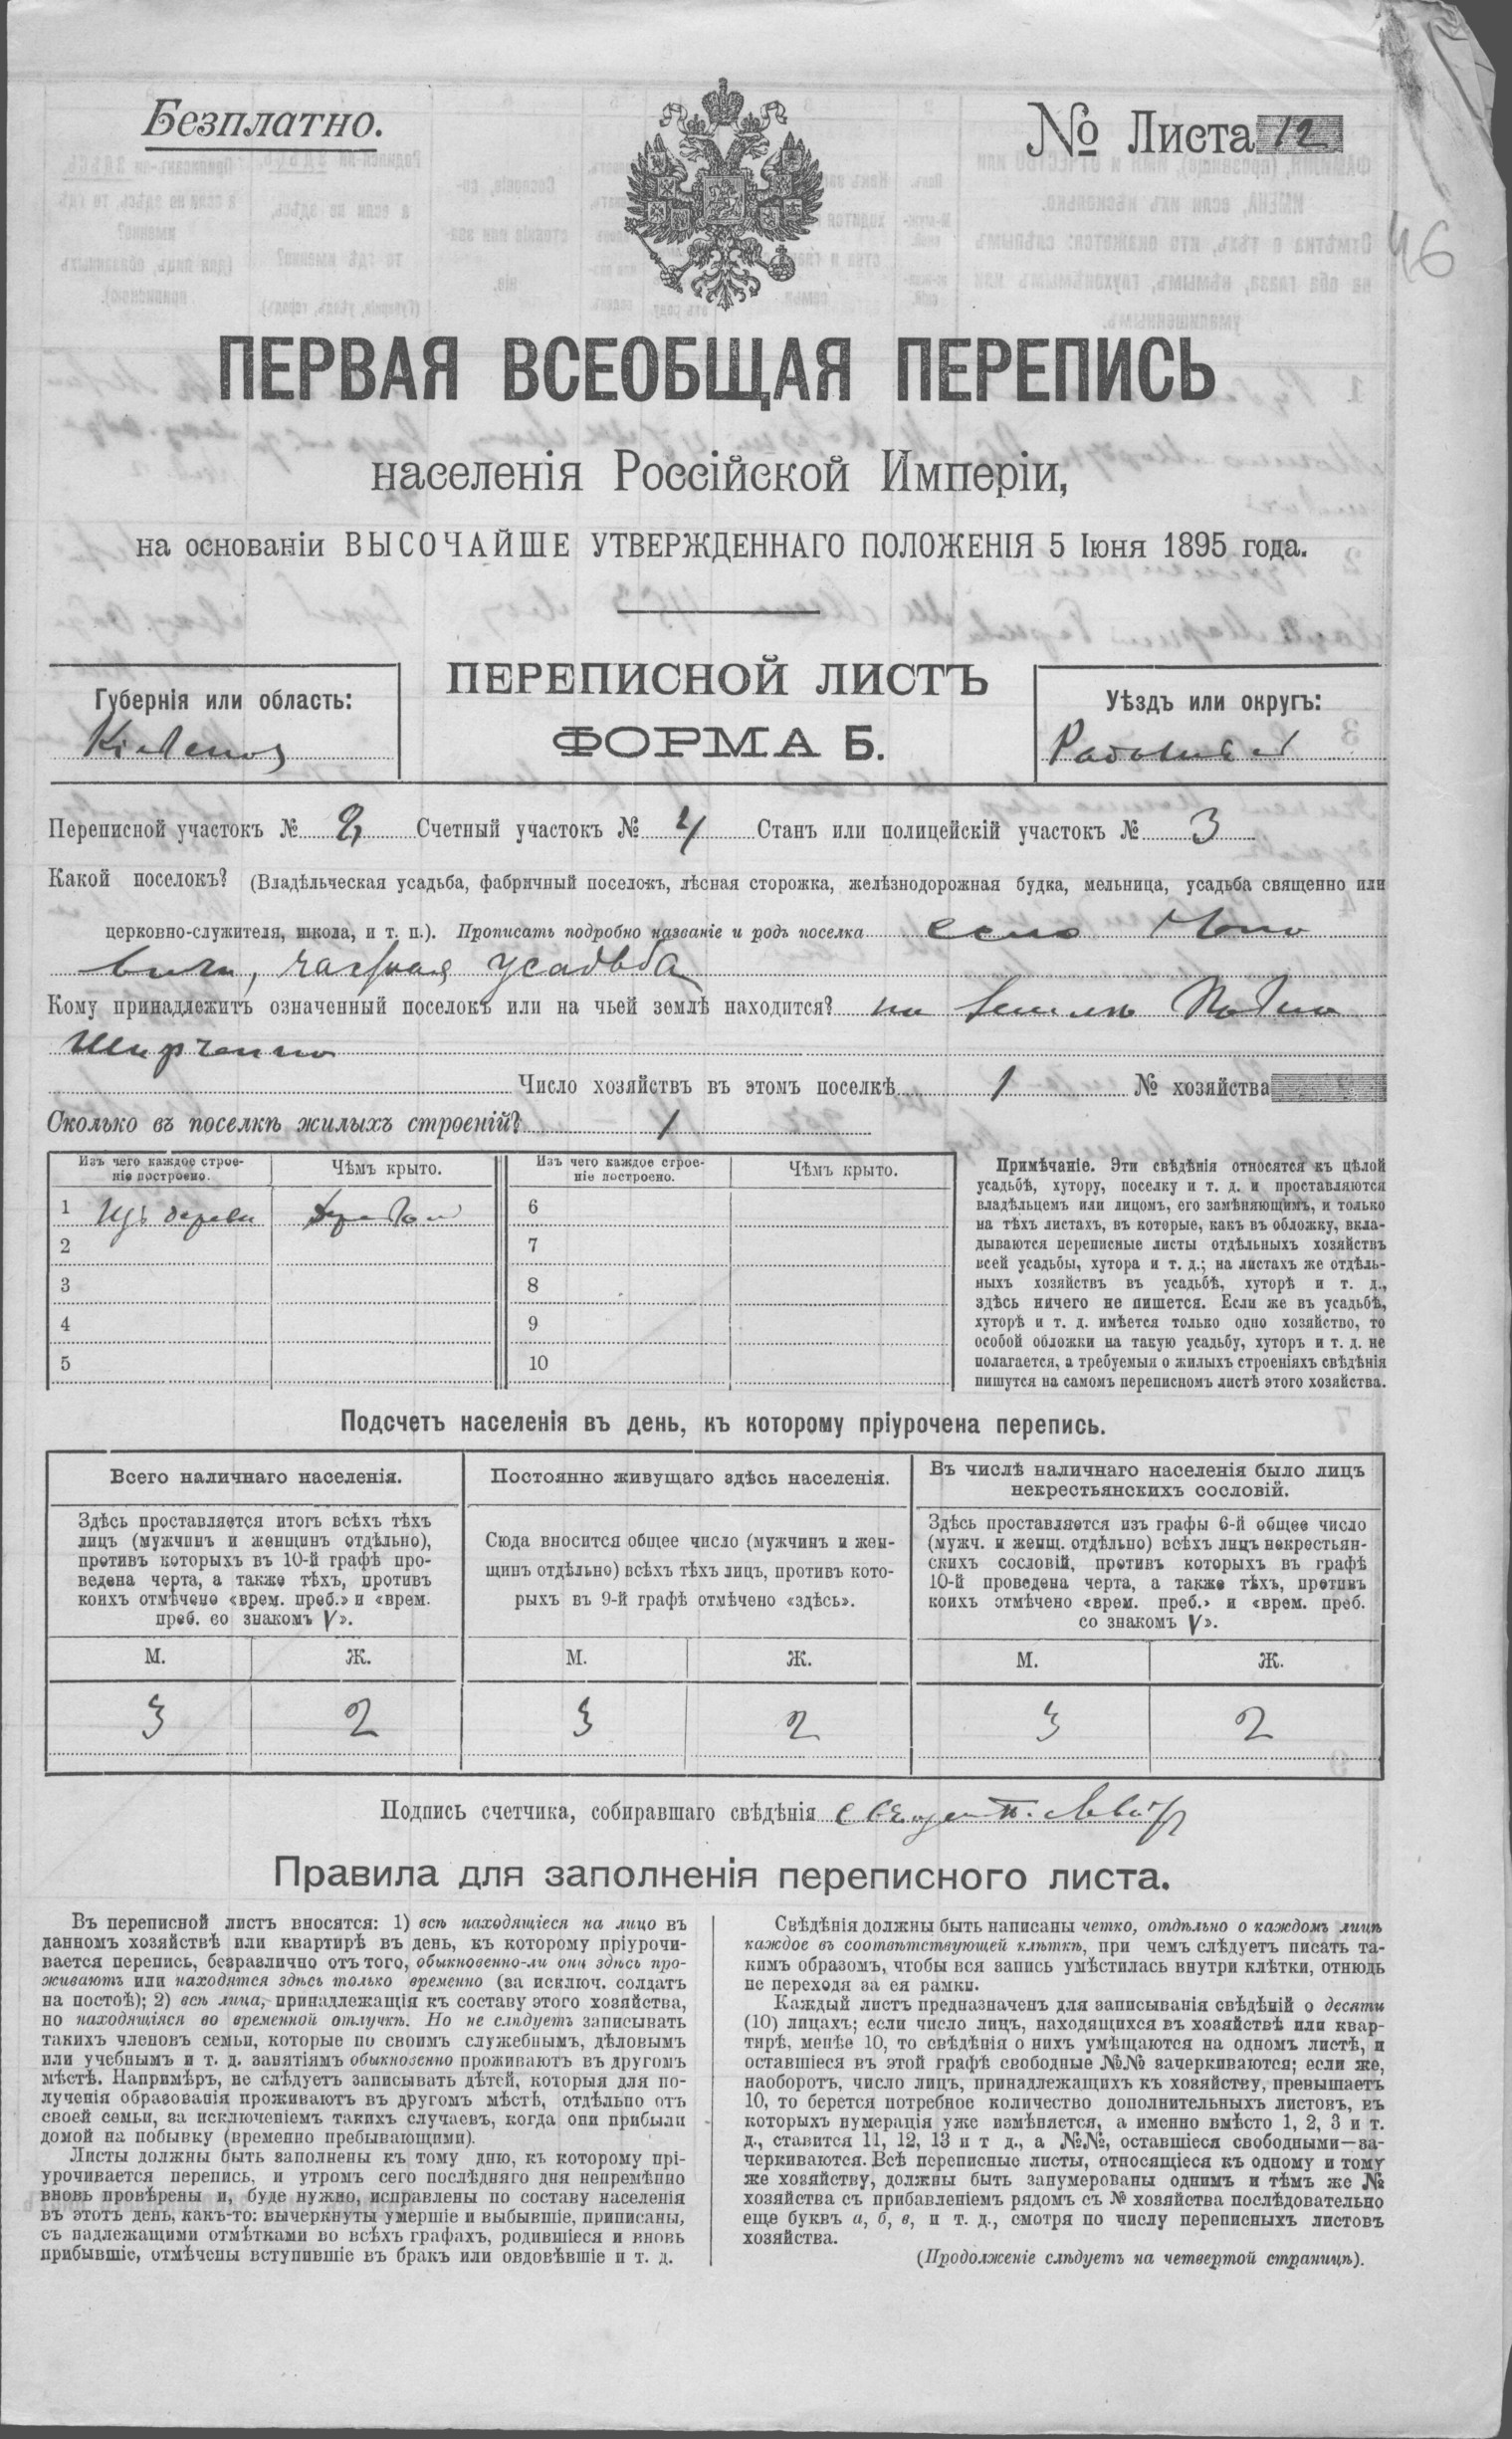 Безплатно.
№ Листа 12
46
ПЕРВАЯ ВСЕОБЩАЯ ПЕРЕПИСЬ
населенія Россійской Имперіи,
на основаніи ВЫСОЧАЙШЕ УТВЕРЖДЕННАГО ПОЛОЖЕНІЯ 5 Іюня 1895 года.
ПЕРЕПИСНОЙ ЛИСТЪ
ФОРМА Б.
Губернія или область:
Уѣздъ или округъ:
Переписной участокъ № 2 Счетный участокъ № 4 Станъ или полицейскій участокъ № 3
Какой поселокъ? (Владѣльческая усадьба, фабричный поселокъ, лѣсная сторожка, желѣзнодорожная будка, мельница, усадьба священно или
церковно-служителя, школа, и т. п.). Прописать подробно названіе и родъ поселка село
вичи, частная усадьба
Кому принадлежитъ означенный поселокъ или на чьей землѣ находится? на землѣ
Число хозяйствъ въ этомъ поселкѣ 1 № хозяйства
Сколько въ поселкѣ жилыхъ строеній? 1
Изъ чего каждое строе-
ніе построено.
Чѣмъ крыто.
Изъ чего каждое строе-
ніе построено.
Чѣмъ крыто.
1 Изъ дерева
2
3
4
5
6
7
8
9
10
Примѣчаніе. Эти свѣдѣнія относятся къ цѣлой
усадьбѣ, хутору, поселку и т. д. и проставляются
владѣльцемъ или лицомъ, его замѣняющимъ, и только
на тѣхъ листахъ, въ которые, какъ въ обложку, вкла-
дываются переписные листы отдѣльныхъ хозяйствъ
всей усадьбы, хутора и т. д.; на листахъ же отдѣль-
ныхъ хозяйствъ въ усадьбѣ, хуторѣ и т. д.,
здѣсь ничего не пишется. Если же въ усадьбѣ,
хуторѣ и т. д. имѣется только одно хозяйство, то
особой обложки на такую усадьбу, хуторъ и т. д. не
полагается, а требуемыя о жилыхъ строеніяхъ свѣдѣнія
пишутся на самомъ переписномъ листѣ этого хозяйства.
Подсчетъ населенія въ день, къ которому пріурочена перепись.
Всего наличнаго населенія.
Здѣсь проставляется итогъ всѣхъ тѣхъ
лицъ (мужчинъ и женщинъ отдѣльно),
противъ которыхъ въ 10-й графѣ про-
ведена черта, а также тѣхъ, противъ
коихъ отмѣчено «врем. преб.» и «врем.
преб. со знакомъ V».
Постоянно живущаго здѣсь населенія.
Сюда вносится общее число (мужчинъ и жен-
щинъ отдѣльно) всѣхъ тѣхъ лицъ, противъ кото-
рыхъ въ 9-й графѣ отмѣчено «здѣсь».
Въ числѣ наличнаго населенія было лицъ
некрестьянскихъ сословій.
Здѣсь проставляется изъ графы 6-й общее число
(мужч. и женщ. отдѣльно) всѣхъ лицъ некрестьян-
скихъ сословій, противъ которыхъ въ графѣ
10-й проведена черта, а также тѣхъ, противъ
коихъ отмѣчено «врем. преб.» и «врем. преб.
со знакомъ V».
М. Ж. М. Ж. М. Ж.
3 2 3 2 3 2
Подпись счетчика, собиравшаго свѣдѣнія
Правила для заполненія переписного листа.
Въ переписной листъ вносятся: 1) всѣ находящіеся на лицо въ
данномъ хозяйствѣ или квартирѣ въ день, къ которому пріурочи-
вается перепись, безразлично отъ того, обыкновенно-ли они здѣсь про-
живаютъ или находятся здѣсь только временно (за исключ. солдатъ
на постоѣ); 2) всѣ лица, принадлежащія къ составу этого хозяйства,
но находящіяся во временной отлучкѣ. Но не слѣдуетъ записывать
такихъ членовъ семьи, которые по своимъ служебнымъ, дѣловымъ
или учебнымъ и т. д. занятіямъ обыкновенно проживаютъ въ другомъ
мѣстѣ. Напримѣръ, не слѣдуетъ записывать дѣтей, которыя для по-
лученія образованія проживаютъ въ другомъ мѣстѣ, отдѣльно отъ
своей семьи, за исключеніемъ такихъ случаевъ, когда они прибыли
домой на побывку (временно пребывающими).
Листы должны быть заполнены къ тому дню, къ которому прі-
урочивается перепись, и утромъ сего послѣдняго дня непремѣнно
вновь провѣрены и, буде нужно, исправлены по составу населенія
въ этотъ день, какъ-то: вычеркнуты умершіе и выбывшіе, приписаны,
съ надлежащими отмѣтками во всѣхъ графахъ, родившіеся и вновь
прибывшіе, отмѣчены вступившіе въ бракъ или овдовѣвшіе и т. д.
Свѣдѣнія должны быть написаны четко, отдѣльно о каждомъ лицѣ
каждое въ соотвѣтствующей клѣткѣ, при чемъ слѣдуетъ писать та-
кимъ образомъ, чтобы вся запись умѣстилась внутри клѣтки, отнюдь
не переходя за ея рамки.
Каждый листъ предназначенъ для записыванія свѣдѣній о десяти
(10) лицахъ; если число лицъ, находящихся въ хозяйствѣ или квар-
тирѣ, менѣе 10, то свѣдѣнія о нихъ умѣщаются на одномъ листѣ, и
оставшіеся въ этой графѣ свободные №№ зачеркиваются; если же,
наоборотъ, число лицъ, принадлежащихъ къ хозяйству, превышаетъ
10, то берется потребное количество дополнительныхъ листовъ, въ
которыхъ нумерація уже измѣняется, а именно вмѣсто 1, 2, 3 и т.
д., ставится 11, 12, 13 и т д., а №№, оставшіеся свободными—за-
черкиваются. Всѣ переписные листы, относящіеся къ одному и тому
же хозяйству, должны быть занумерованы однимъ и тѣмъ же №
хозяйства съ прибавленіемъ рядомъ съ № хозяйства послѣдовательно
еще буквъ а, б, в, и т. д., смотря по числу переписныхъ листовъ
хозяйства.
(Продолженіе слѣдуетъ на четвертой страницѣ).